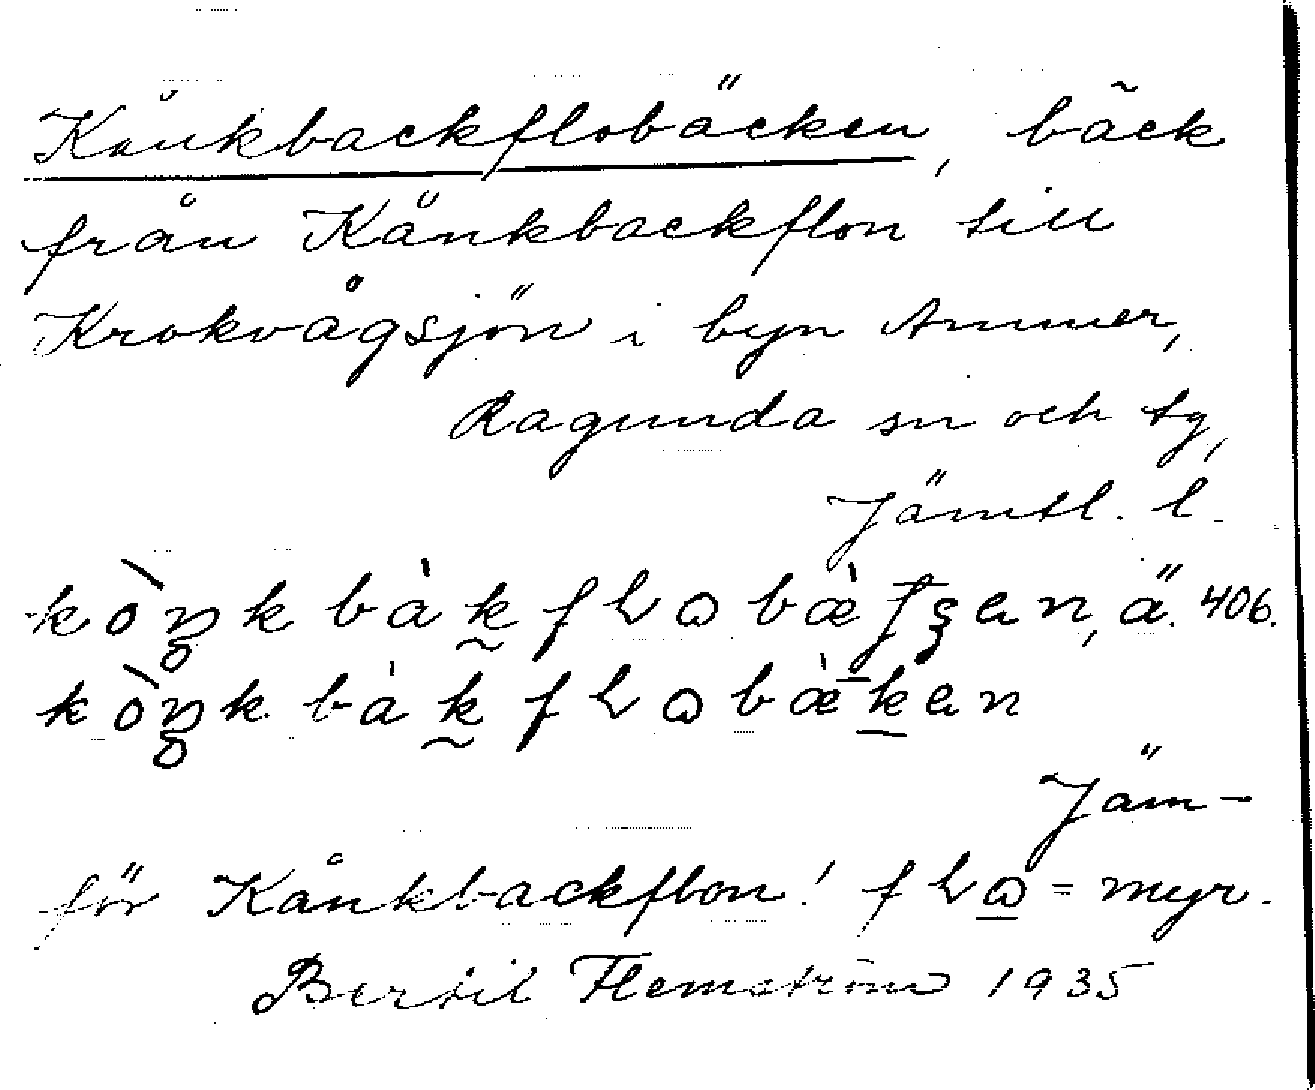 Kånkbackflobäcken, bäck
från Kånkbackflon till
Krokvågsjön i byn Ammer,
Ragunda sn och tg,
Jämtl. l.
kòŋk bàk fLɷbæ̀ʈʂen, ä. 406.
kòŋk bàk fLɷbæ̀ken
Jäm-
för Kånkbackflon! fLɷ = myr.
Bertil Flemström 1935